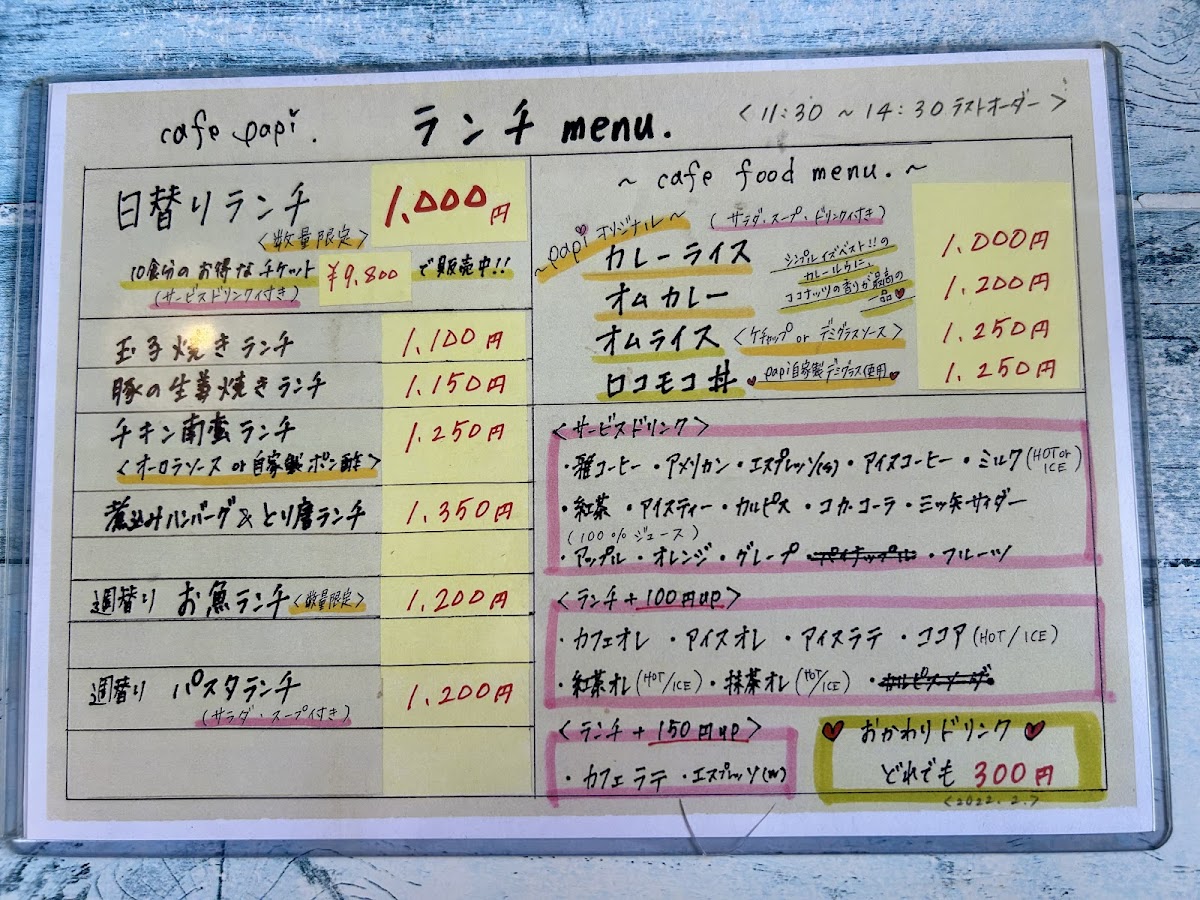 cafe papi. ランチ menu. <11:30 ~ 14:30 ラストオーダー>
日替りランチ 1.000円
<数量限定>
10食分のお得なチケット ¥9.800 で販売中!!
(サービスドリンク付き)
玉子焼きランチ 1.100円
豚の生姜焼きランチ 1.150円
チキン南蛮ランチ 1.250円
<オーロラソース or 自家製ポン酢>
煮込みハンバーグ&とり唐ランチ 1.350円
週替り お魚ランチ <数量限定> 1.200円
週替り パスタランチ 1.200円
(サラダ・スープ付き)
~ cafe food menu. ~
(サラダ・スープ・ドリンク付き)
~papiオリジナル~
カレーライス 1.000円
シンプルイズベスト!!の
カレールウに、
ココナッツの香りが最高の
一品
オムカレー 1.200円
オムライス <ケチャップ or デミグラスソース> 1.250円
ロコモコ丼 papi自家製デミグラス使用 1.250円
<サービスドリンク>
・雅コーヒー ・アメリカン ・エスプレッソ(s) ・アイスコーヒー ・ミルク(HOT or ICE)
・紅茶 ・アイスティー ・カルピス ・コカ・コーラ ・三ツ矢サイダー
(100%ジュース)
・アップル ・オレンジ ・グレープ ・パイナップル ・フルーツ
<ランチ + 100円up>
・カフェオレ ・アイスオレ ・アイスラテ ・ココア(HOT/ICE)
・紅茶オレ(HOT/ICE) ・抹茶オレ(HOT/ICE) ・カルピスソーダ
<ランチ + 150円up>
・カフェラテ ・エスプレッソ(W)
おかわりドリンク
どれでも 300円
<2022.2.>